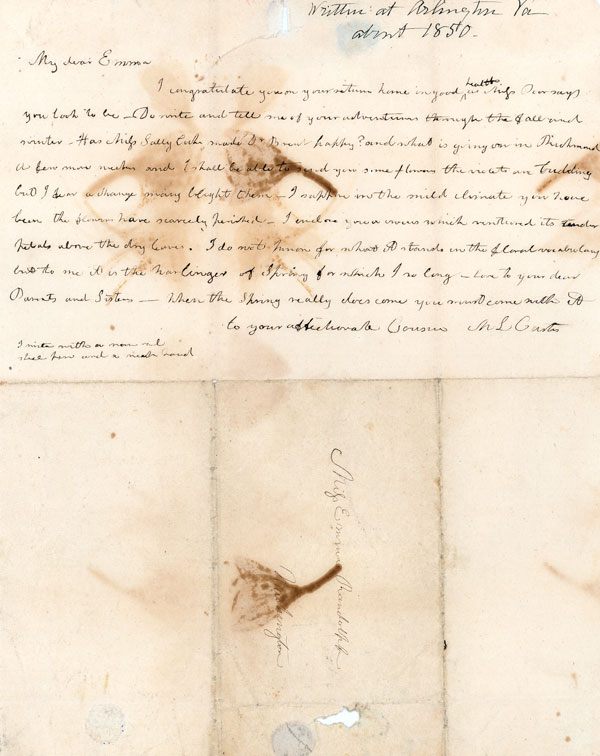 Written at Arlington Va
about 1850.
My dear Emma
I congratulate you on your return home in good health as Miss says
you look to be - Do write and tell me of your adventures through the fall and
winter. Has Miss Sally made Dr happy? and what is going on in Richmond
A few more weeks and I shall be able to send you some flowers the violets are budding
but I fear a change may blight them - I suppose in the mild climate you have
been the flowers have scarcely perished - I enclose you a crocus which ventured its tender
petals above the dry leaves. I do not know for what it stands in the floral vocabulary
but to me it is the harbinger of Spring for which I so long - love to your dear
Parents and Sisters - when the Spring really does come you must come with it
to your affectionate Cousin M L Custis
I write with a new
steel pen and a weak hand
Miss Emma Randolph
Washington